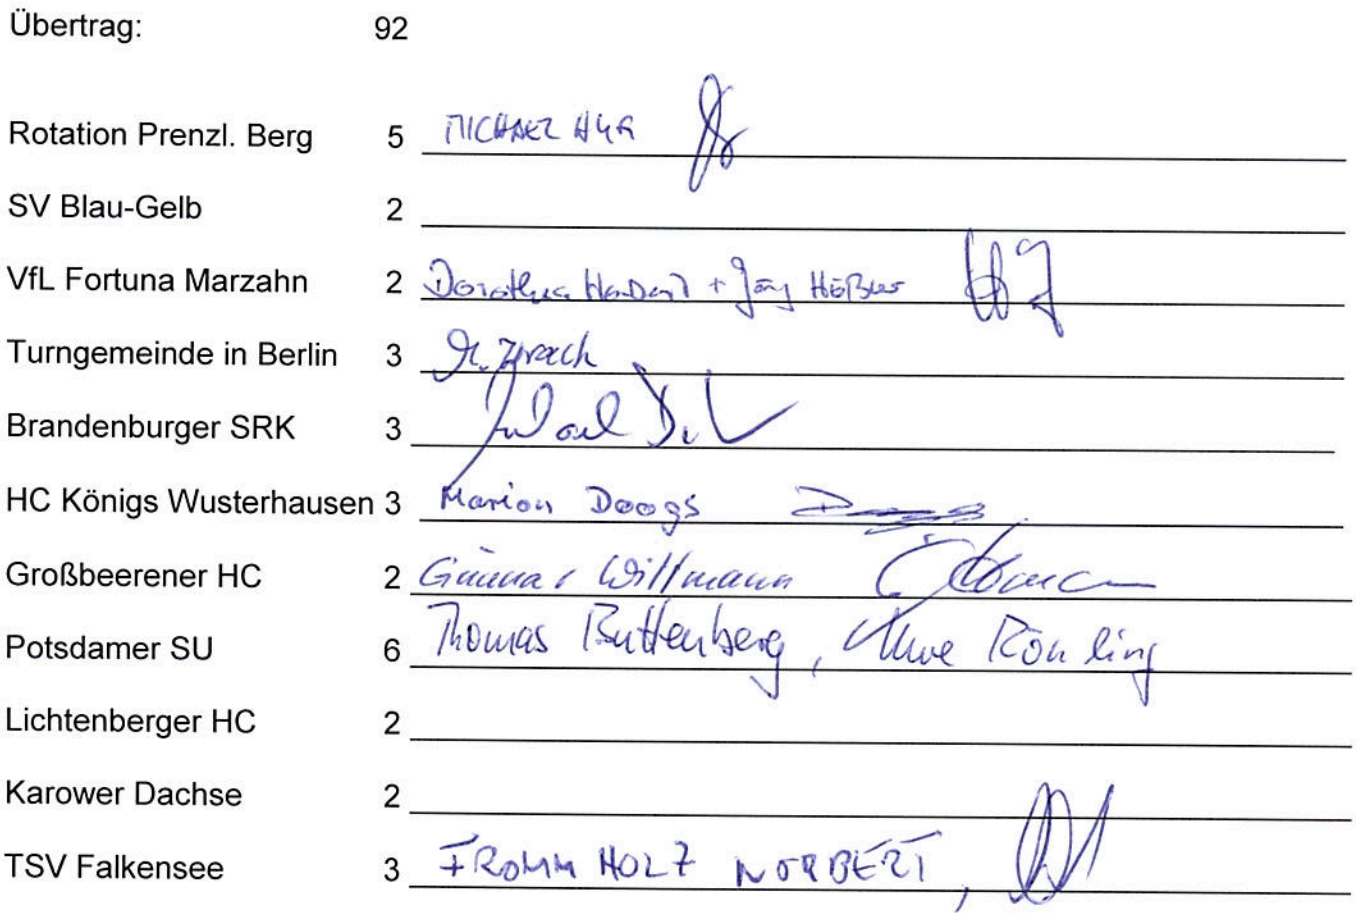 Übertrag: 92
Rotation Prenzl. Berg 5 MICHAEL
SV Blau-Gelb 2
VfL Fortuna Marzahn 2 Dorothea + Jörg
Turngemeinde in Berlin 3
Brandenburger SRK 3
HC Königs Wusterhausen 3 Marion Doogs
Großbeerener HC 2 Gunnar Wittmann
Potsdamer SU 6 Thomas Buttenberg, Uwe Rönling
Lichtenberger HC 2
Karower Dachse 2
TSV Falkensee 3 FROMMHOLZ NORBERT,